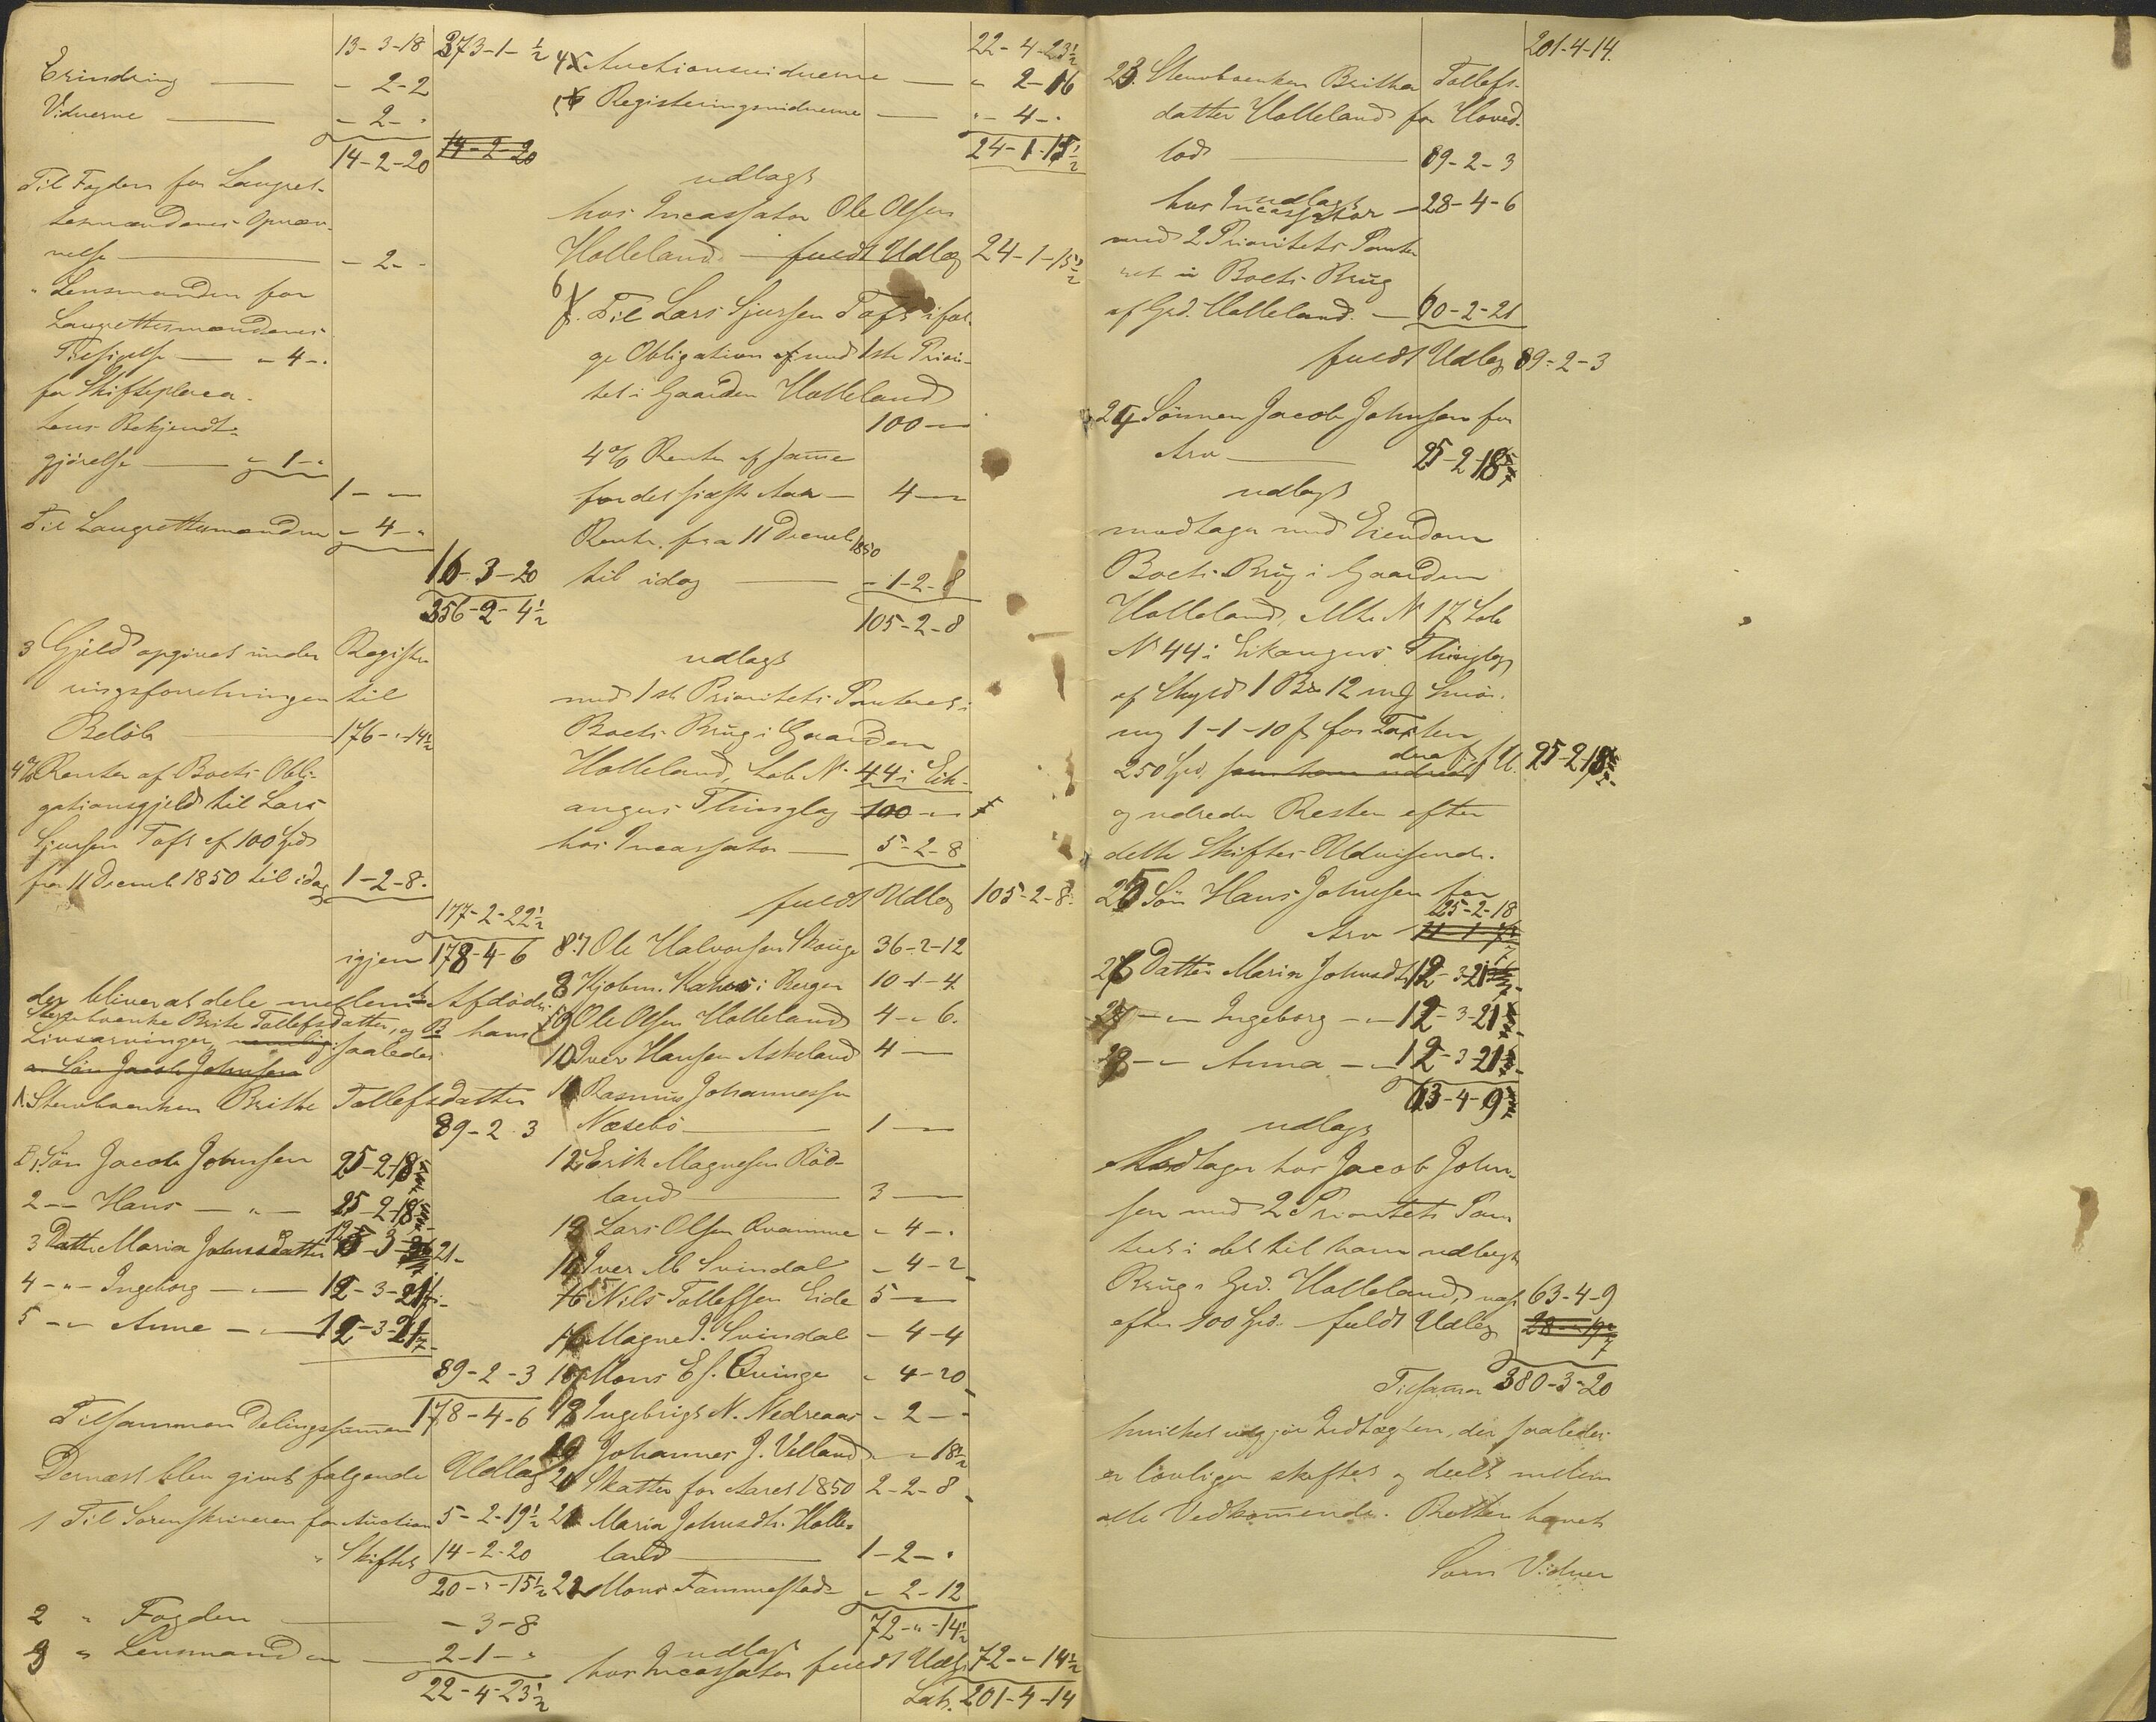 13-3-18 373-1-½
Erindring — - 2-2
Viduerne — - 2- -
14-2-20 14-2-20
Til Fogden for Laugret-
tesmændenes Opnæv-
nelse — - 2- -
" Lensmanden for
Laugrettesmændenes
Tilsigelse — - 4 -
for Skifteplaca-
tens Bekjendt-
gjørelse — - 1 -
1 - -
Til Laugrettesmændene - 4 -
16-3-20
356-2-4½
3 Gjeld opgivet under Registre-
ringsforretningen til
Beløb 176 - " - 14½
4% Renter af Boets Obli-
gationsgjeld til Lars
Sjursen Toft af 100 Spd
fra 11 Decemb 1850 til idag 1-2-8.
177-2-22½
igjen 178-4-6
der bliver at dele mellem den Afdødes
Sterbeenke Brite Tollefsdatter, og B hans
Livsarvinger, nemlig: saaledes:
a. Søn Jacob Johnsen
A. Sterboenken Brithe Tollefsdatter
89-2-3
B 1. Søn Jacob Johnsen 25-2-18
2 -- Hans — " — 25-2-18
3 Datter Maria Johnsdatter 12-3-21
4 - " - Ingeborg - " - 12-3-21
5 - " - Anne - " - 12-3-21
89-2-3
Tilsammen Delingssummen 178-4-6
Dernæst blev givet følgende Udlæg
1 Til Sorenskriveren for Auction 5-2-19½
" Skiftet 14-2-20
20 - " - 15½
2 " Fogden — - 3-8
3 " Lensmanden — 2-1- "
22-4-23½
22-4-23½
4 Auctionsvidnerne — " 2-16
5 Registeringsvidnerne — " - 4 - "
24-1-15½
udlagt
hos Incassator Ole Olsen
Holleland — fuldt Udlæg 24-1-15½
6. Til Lars Sjursen Toft iføl-
ge Obligation af med 1ste Priori-
tet i Gaarden Holleland
100 - -
4% Rente af samme
for det sidste Aar — 4 - -
Rente fra 11 Decemb 1850
til idag — - 1-2-8
105-2-8
udlagt
med 1ste Prioritets Panteret i
Boets Brug i Gaarden
Holleland, Lob N. 44 i Eik-
angers Thinglag 100 - -
hos Incassator — 5-2-8
fuldt Udlæg 105-2-8.
7 Ole Halvorsen Skouge 36-2-12
8 Kjøbm. Kahrs i Bergen 10-1-4
9 Ole Olsen Holleland 4 - " 6.
10 Iver Hansen Askeland 4 - -
11 Rasmus Johannessen
Næsebø — 1 - -
12 Erik Magnesen Rød-
land — 3 - -
13 Lars Olsen Qvamme - 4 - "
14 Iver M Svindal - 4-2
15 Nils Tollefsen Eide 5 - -
16 Magne J. Svindal - 4-4
17 Mons Es. Qvinge - 4-20
18 Ingebrigt N. Nedreaas - 2 - -
19 Johannes J. Velland - " 18½
20 Skatter for Aaret 1850 2-2-8
21 Maria Johnsdtr. Holle-
land — 1-2- "
22 Mons Fammestad - 2-12
72 - " - 14½
udlagt
hos Incassator fuldt Udlæg 72 - " 14½
Lats. 201-4-14
201-4-14.
23. Sterboenken Brithe Tollefs-
datter Holleland for Hoved-
lod — 89-2-3
udlagt
hos Incassator — 28-4-6
med 2 Prioritets Pante-
ret i Boets Brug
af Grd. Holleland. — 60-2-21
fuldt Udlæg 89-2-3
24 Sønnen Jacob Johnsen for
Arv — 25-2-18
udlagt
modtager med Eiendom
Boets Brug i Gaarden
Holleland, Mtr N 17 Løb
N 44 i Eikangers Thinglag
af Skyld 1 Bpd 12 mg Smør.
ny 1-1-10 ß for Taxten
250 Spd. som han udreder 25-2-18
og udreder Resten efter
dette Skiftes Udvisende.
25 Søn Hans Johnsen for
25-2-18
Arv
26 Datter Maria Johnsdtr 12-3-21
27 - " - Ingeborg - " - 12-3-21
28 - " - Anna - " - 12-3-21
63-4-9
udlagt
Modtager hos Jacob John-
sen med 2 Prioritets Pan-
teret i det til ham udlagte
Brug i Grd. Holleland, næst 63-4-9
efter 100 Spd. fuldt Udlæg
Tilsammen 380-3-20
hvilket udgjør Indtægten, der saaledes
er lovligen skiftet og deelt mellem
alle Vedkommende. Retten hævet
Som Vidner